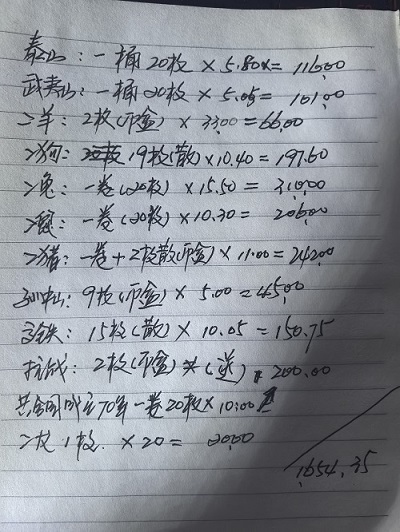 泰山：一桶20枚×5.80=116.00
武夷山：一桶20枚×5.05=101.00
二羊：2枚(币盒)×33.00=66.00
二狗：19枚(散)×10.40=197.60
二兔：一卷(20枚)×15.50=310.00
二鼠：一卷(20枚)×10.30=206.00
二猪：一卷+2枚散(币盒)×11.00=242.00
孙中山：9枚(币盒)×5.00=45.00
高铁：15枚(散)×10.05=150.75
抗战：2枚(币盒)(送)
200.00
共和国成立70年一卷20枚×10.00
1枚×20=20.00
1654.35